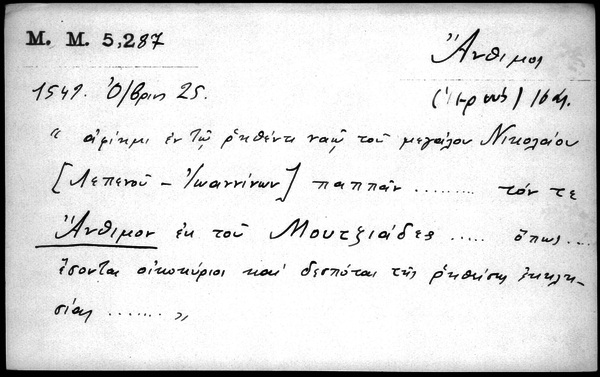 M. M. 5,287
Ἄνθιμος
1542. Ὀ/βριος 25.
(ἱερεὺς) 16 αἰ.
“ ἀφίημι ἐν τῷ ῥηθέντι ναῷ τοῦ μεγάλου Νικολάου
[Λεπενοῦ – Ἰωαννίνων] παππᾶν ......... τόν τε
Ἄνθιμον ἐκ τοῦ Μουτζιάδες ..... ὅπως ...
ἔσονται οἰκοκύριοι καὶ δεσπόται τῆς ῥηθείσης ἐκκλη-
σίας ....... „